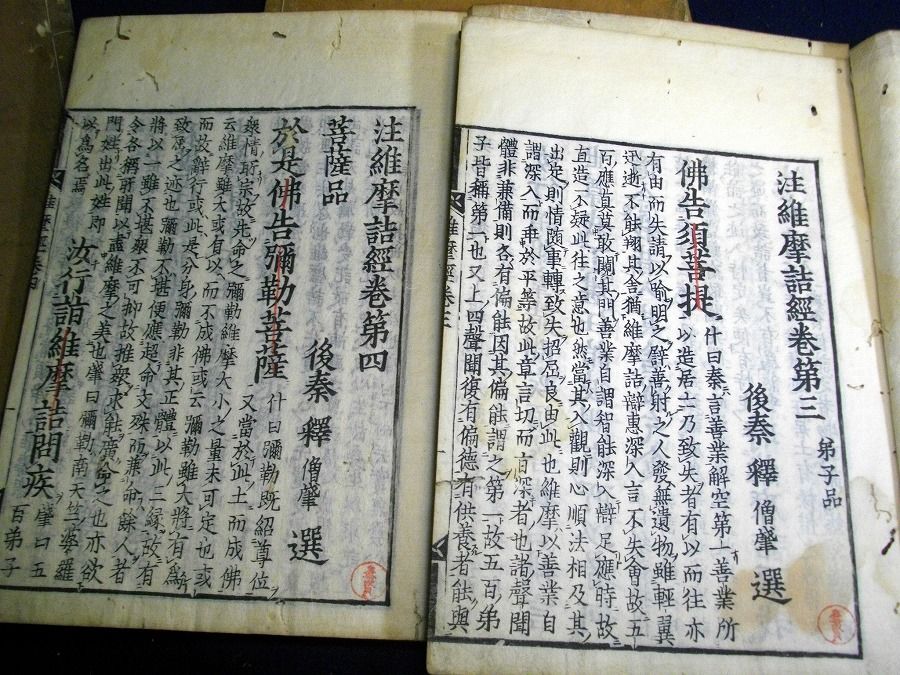 注維摩詰經卷第三 弟子品
後秦 釋 僧肇 選
佛告須菩提 什曰秦言善業解空第一善業所
以造居士乃致失者有以而往亦
有由而失請以喻明之譬善射之人發無遺物雖輕翼
迅逝不能翔其舍猶維摩詰辯惠深入言不失會故五
百應真莫敢闚其門善業自謂智能深入辯足應時故
直造不疑此往之意也然當其入觀則心順法相及其
出定則情隨事轉致失招屈良由此也維摩以善業自
謂深入而乖於平等故此章言切而旨深者也諸聲聞
體非兼備則各有偏能因其偏能謂之第一故五百弟
子皆稱第一也又上四聲聞復有偏德有供養者能與
維摩經卷三
注維摩詰經卷第四
後秦 釋 僧肇 選
菩薩品
於是佛告彌勒菩薩 什曰彌勒既紹尊位
又當於此土而成佛
衆情所宗故先命之彌勒維摩大小之量未可定也或
云維摩雖大或有以而不成佛或云彌勒雖大將有為
而故辭行或此是分身彌勒非其正體以此二緣故有
致屈之迹也彌勒不堪便應超命文殊而兼命餘人者
將以一雖不堪衆不可抑故推衆求能廣命之也亦欲
令各稱所聞以盛維摩之美也肇曰彌勒南天竺婆羅
門姓出此姓即
以為名焉
汝行詣維摩詰問疾 肇曰五
百弟子
維摩經卷四